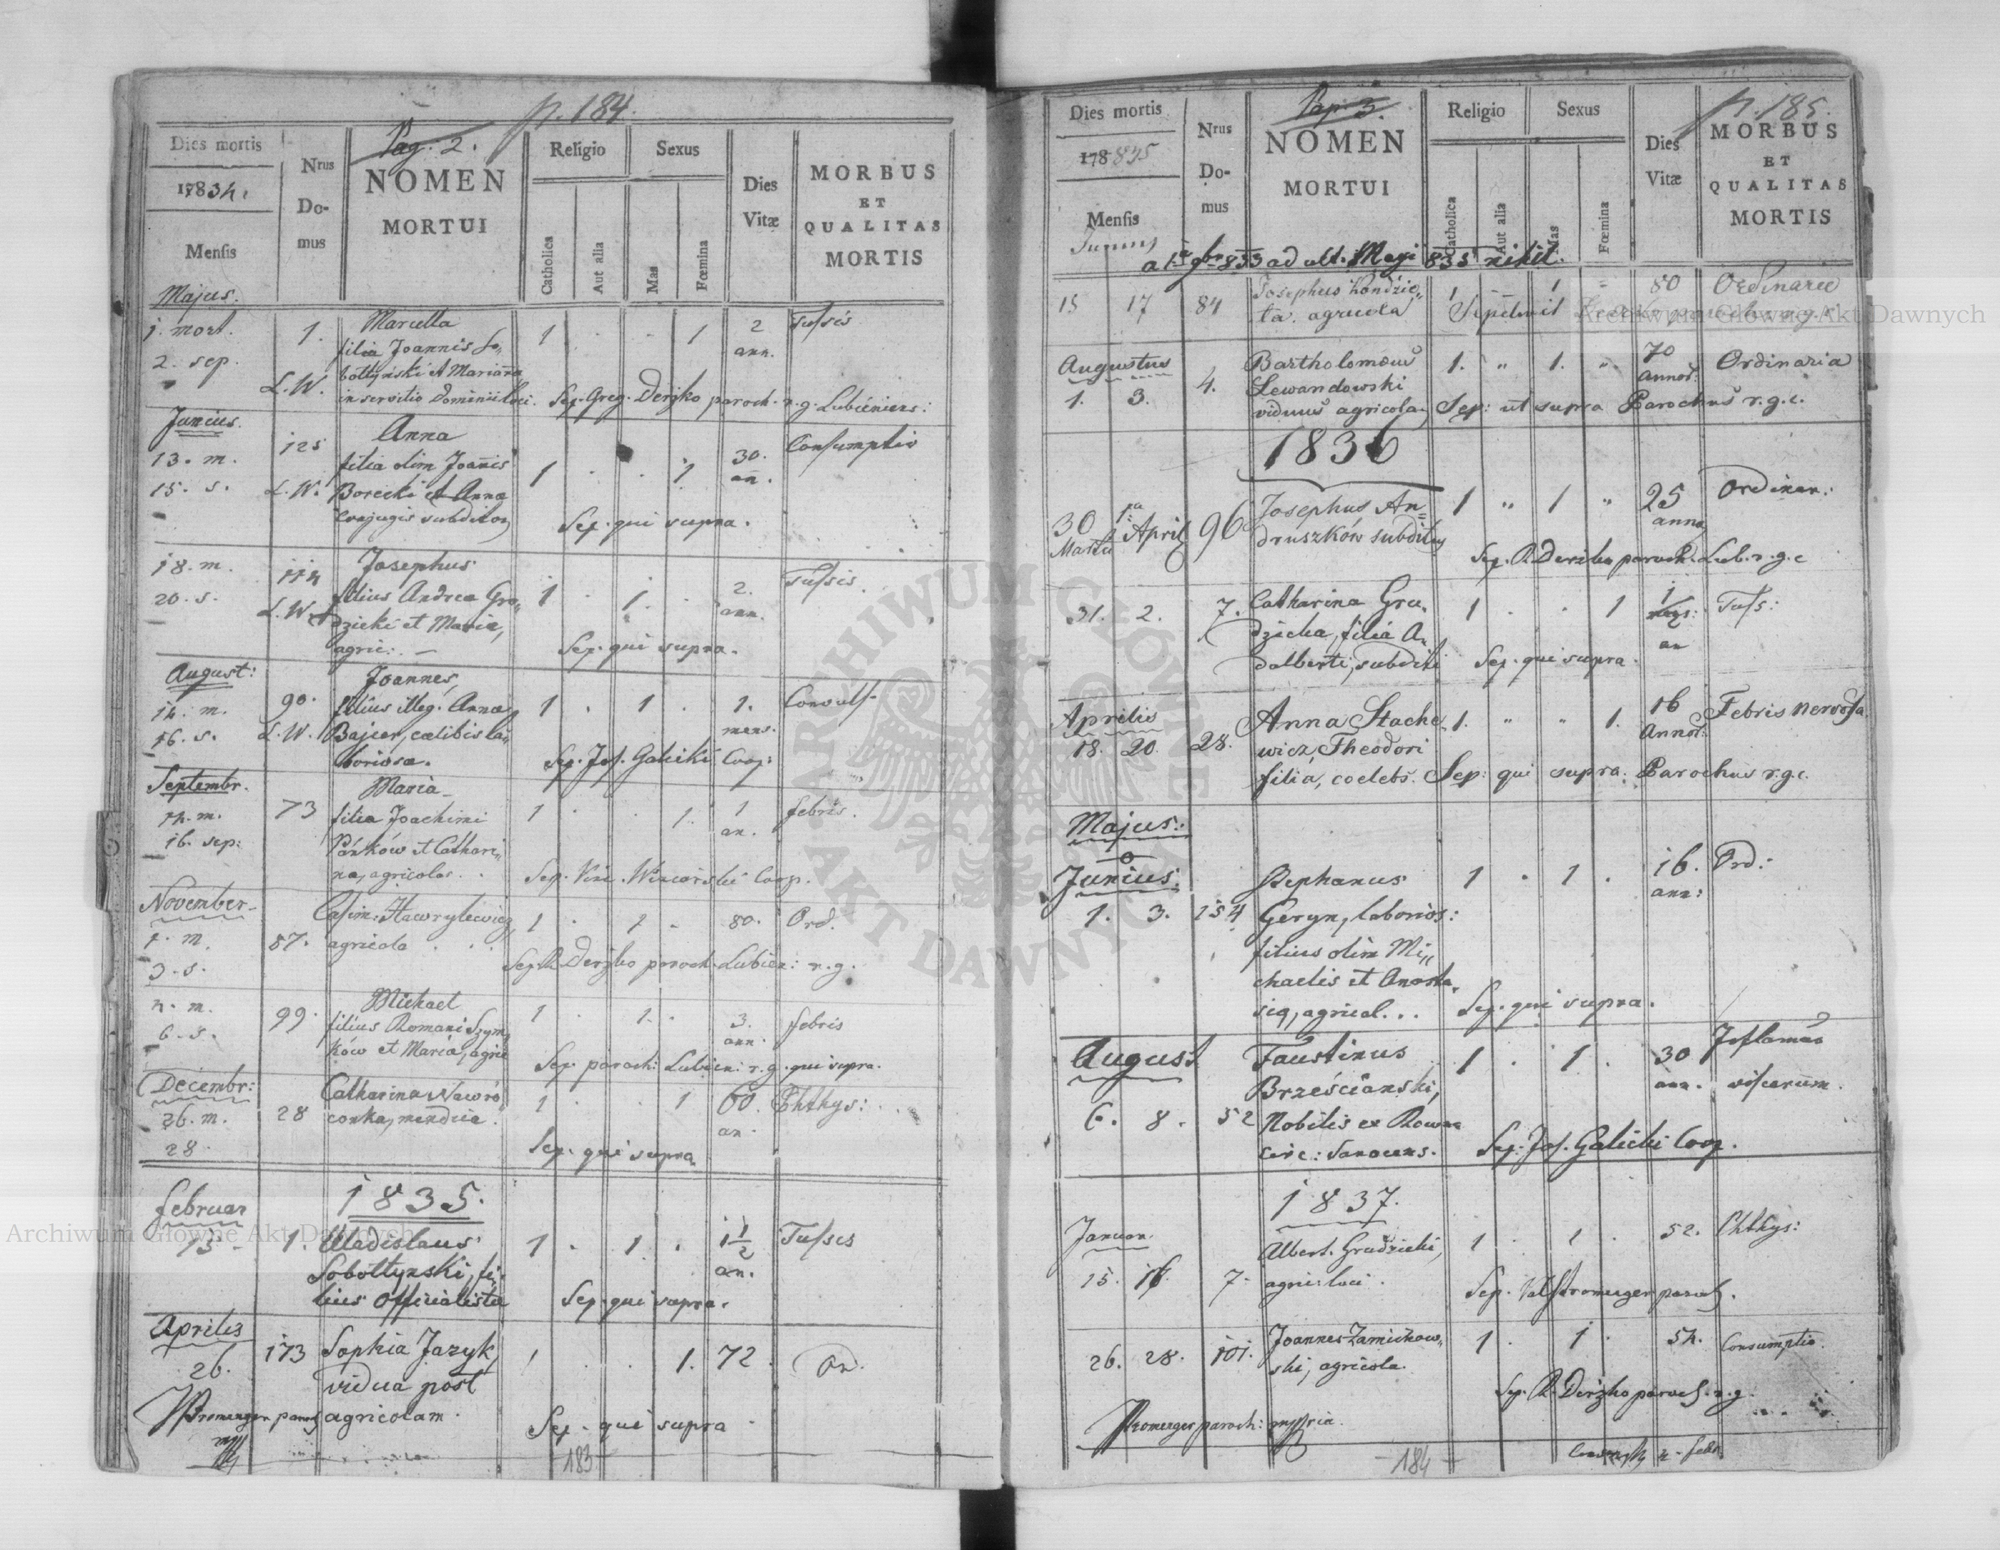 p. 184.
Pag. 2.
Dies mortis
Nrus
Do-
mus
NOMEN
MORTUI
Religio
Sexus
Dies
Vitæ
MORBUS
ET
QUALITAS
MORTIS
17834.
Mensis
Catholica
Aut alia
Mas
Fœmina
Majus.
1. mort.
2. sep.
1.
L. W.
Marcella
filia Joannis So„
bottyński et Marianna
in servitio Dominii loci.
1 . . 1
2
ann.
Tussis
Sep. Greg. Derżko paroch. r. g. Lubieniens:
Junius.
13. m.
15. s.
125
L. W.
Anna
filia olim Joannis
Borecki et Anna
conjugis subditor
1 . . 1
30.
an.
Consumptio
Sep. qui supra.
18. m.
20. s.
114
L. W.
Josephus
filius Andrea Gro„
dzicki et Maria,
agric: . —
1 . 1 .
2.
ann.
Tussis.
Sep. qui supra.
August:
14. m.
16. s.
90.
L. W.
Joannes,
filius illeg. Anna
Bajcer, cœlibis la„
boriosa.
1 . 1 .
1.
mens.
Convuls-
Sep. Jos. Galicki Coop:
Septembr.
14. m.
16. sep:
73
Maria
filia Joachimi
Pańków et Cathari„
na, agricolor. . .
1 . . 1.
1
an.
febris.
Sep. Vinc. Coop.
November-
1. m.
3. s.
87.
Casim: Hawrylewicz,
agricola . . .
1 . 1 .
80.
Ord.
Sep. R. Derżko paroch. Lubien: r. g.
4. m.
6. s.
99.
Michael
filius Romani Szym„
ków et Maria, agric
1 . 1 .
3.
ann.
febris
Sep. paroch: Lubien: r. g. qui supra.
Decembr:
26. m.
28.
28
Catharina Nawro
conka, mendica.
1 . . 1
60.
an.
Phthys: . .
Sep. qui supra
1835.
Februar
13 -
1.
Vladislaus
Sobottyński, fi„
lius Officialista
1 . 1 .
1 1/2
an.
Tussis
Sep. qui supra.
Aprilis
26.
173
Sophia Jazyk,
vidua post
agricolam.
1 . . 1.
72.
Or.
Sep. qui supra
Promerger paroch
183
p. 185.
Pag. 3.
Dies mortis
Nrus
Do-
mus
NOMEN
MORTUI
Religio
Sexus
Dies
Vitæ
MORBUS
ET
QUALITAS
MORTIS
178 835
Mensis
Catholica
Aut alia
Mas
Fœmina
Junius
a 1a 9br 833 ad ult. Maji 835 nihil.
15
17
84
Josephus Kondzie„
ta. agricola
1 - 1 "
80
Ordinaria
Sepelivit
Augustus
1. 3.
4.
Bartholomæus
Lewandowski
viduus agricola,
1. " 1. ".
70
Annor:
Ordinaria
Sep: ut supra Parochus r. g. c.
1836
30
Martii
1ma
April
96
Josephus An=
druszków subditus
1 " 1 "
25
anno,
Ordinar:
Sep. R. Derżko paroch. Lub. r. g. c
31. 2.
7.
Catharina Gru„
dzicka, filia A„
dalberti, subditi
1 . . 1
1
an
Tuss:
Sep. qui supra.
Aprilis
18. 20.
28.
Anna Stache
wicz, Theodori
filia, coelebs.
1. " " 1.
16
Annor:
Febris nervosa.
Sep: qui supra. Parochus r. g. c.
Majus:
0
Junius.
1. 3.
154
Stephanus
Geryn, laborios:
filius olim Mi„
chaelis et Anasta„
sia, agricol. . .
1 . 1 .
16.
ann:
Ord.:
Sep. qui supra.
August
6. 8.
52
Faustinus
Brześcianski,
Nobilis ex Rowne
circ: Sanocens.
1 . 1 .
30
ann.
Inflamac
viscerum.
Sep: Jos. Galicki Coop.
1837.
Januar.
15. 16.
7.
Albert. Grudzicki,
agric: loci.
1 . 1 .
52.
Phthys:
Sep. Val Promerger paroch.
26. 28.
101.
Joannes Zamichow„
ski, agricola.
1 . 1 .
54.
Consumptio.
Sep. R. Derżko paroch. r. g.
Promerger paroch: mppria
184
ARCHIWUM GŁÓWNE AKT DAWNYCH
Archiwum Główne Akt Dawnych
Archiwum Główne Akt Dawnych